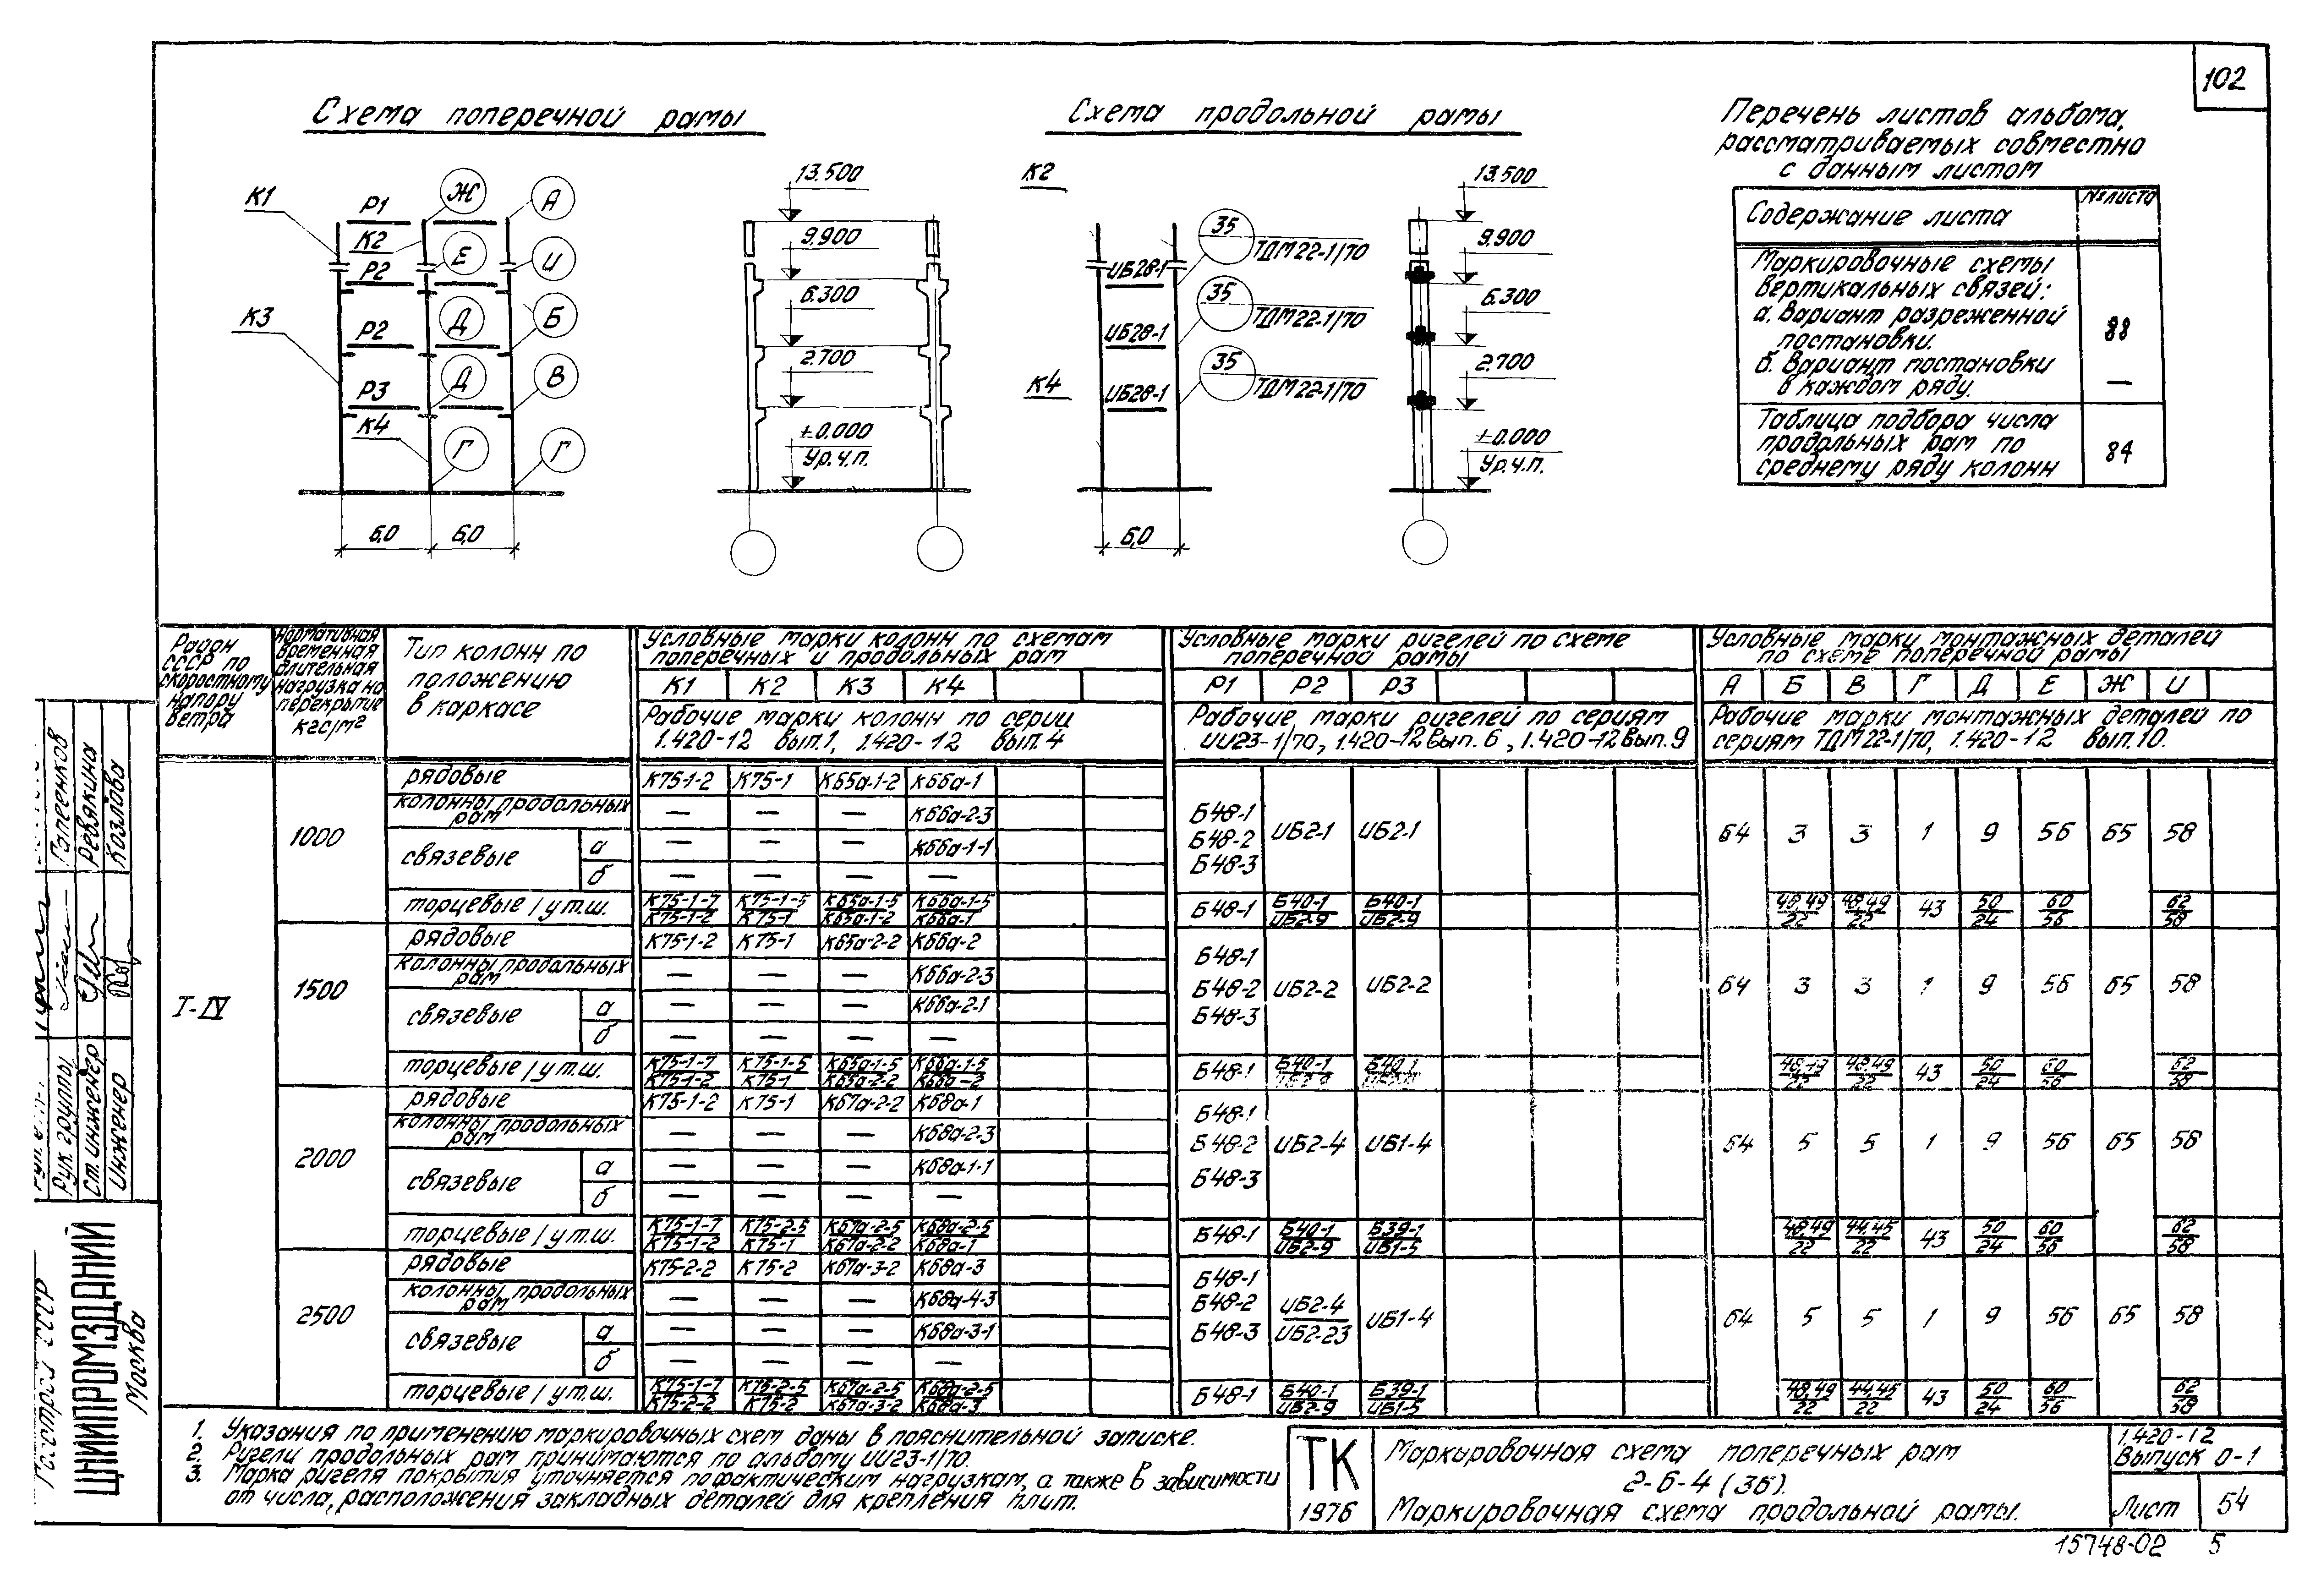 102
Схема поперечной рамы
Схема продольной рамы
Перечень листов альбома,
рассматриваемых совместно
с данным листом
Содержание листа
№ листа
Маркировочные схемы
вертикальных связей:
а. Вариант разреженной
постановки.
88
б. Вариант постановки
в каждом ряду.
—
Таблица подбора числа
продольных рам по
среднему ряду колонн
84
К1 Р1 Ж А
К2 Е И
Р2
К3 Р2 Д Б
Р3 Д В
К4 Г Г
6,0 6,0
13.500
9.900
6.300
2.700
±0.000
Ур.ч.п.
К2
35
ТДМ22-1/70
ИБ28-1
35
ТДМ22-1/70
ИБ28-1
35
ТДМ22-1/70
К4
ИБ28-1
6,0
13.500
9.900
6.300
2.700
±0.000
Ур.ч.п.
Район
СССР по
скоростному
напору
ветра
Нормативная
временная
длительная
нагрузка на
перекрытие
кгс/м²
Тип колонн по
положению
в каркасе
Условные марки колонн по схемам
поперечных и продольных рам
К1 К2 К3 К4
Рабочие марки колонн по серии
1.420-12 вып.1, 1.420-12 вып.4
Условные марки ригелей по схеме
поперечной рамы
Р1 Р2 Р3
Рабочие марки ригелей по сериям
ИИ23-1/70, 1.420-12 вып.6, 1.420-12 вып.9
Условные марки монтажных деталей
по схеме поперечной рамы
А Б В Г Д Е Ж И
Рабочие марки монтажных деталей по
сериям ТДМ22-1/70, 1.420-12 вып.10.
I-IV
1000
рядовые К75-1-2 К75-1 К65а-1-2 К66а-1
колонны продольных рам — — — К66а-2-3
связевые а — — — К66а-1-1
б — — — —
Б48-1
Б48-2 ИБ2-1 ИБ2-1
Б48-3
64 3 3 1 9 56 65 58
торцевые/у т.ш. К75-1-7 К75-1-5 К65а-1-5 К66а-1-5
К75-1-2 К75-1 К65а-1-2 К66а-1
Б48-1 Б40-1 Б40-1
ИБ2-9 ИБ2-9
48,49 48,49 43 50 60 62
22 22 24 56 58
1500
рядовые К75-1-2 К75-1 К65а-2-2 К66а-2
колонны продольных рам — — — К66а-2-3
связевые а — — — К66а-2-1
б — — — —
Б48-1
Б48-2 ИБ2-2 ИБ2-2
Б48-3
64 3 3 1 9 56 65 58
торцевые/у т.ш. К75-1-7 К75-1-5 К65а-1-5 К66а-1-5
К75-1-2 К75-1 К65а-2-2 К66а-2
Б48-1 Б40-1 Б40-1
48,49 48,49 43 50 60 62
22 22 24 56 58
2000
рядовые К75-1-2 К75-1 К67а-2-2 К68а-1
колонны продольных рам — — — К68а-2-3
связевые а — — — К68а-1-1
б — — — —
Б48-1
Б48-2 ИБ2-4 ИБ1-4
Б48-3
64 5 5 1 9 56 65 58
торцевые/у т.ш. К75-1-7 К75-2-5 К67а-2-5 К68а-2-5
К75-1-2 К75-1 К67а-2-2 К68а-1
Б48-1 Б40-1 Б39-1
ИБ2-9 ИБ1-5
48,49 44,45 43 50 60 62
22 22 24 56 58
2500
рядовые К75-2-2 К75-2 К67а-3-2 К68а-3
колонны продольных рам — — — К68а-4-3
связевые а — — — К68а-3-1
б — — — —
Б48-1
Б48-2 ИБ2-4 ИБ1-4
Б48-3 ИБ2-23
64 5 5 1 9 56 65 58
торцевые/у т.ш. К75-1-7 К75-2-5 К67а-2-5 К68а-2-5
К75-2-2 К75-2 К67а-3-2 К68а-3
Б48-1 Б40-1 Б39-1
ИБ2-9 ИБ1-5
48,49 44,45 43 50 60 62
22 22 24 56 58
1. Указания по применению маркировочных схем даны в пояснительной записке.
2. Ригели продольных рам принимаются по альбому ИИ23-1/70.
3. Марка ригеля покрытия уточняется по фактическим нагрузкам, а также в зависимости
от числа, расположения закладных деталей для крепления плит.
ТК
1976
Маркировочная схема поперечных рам
2-6-4 (36).
Маркировочная схема продольной рамы.
1.420-12
Выпуск 0-1
Лист 54
15748-02 5
Рук. группы
Ст. инженер Ревякина
Инженер Козлова
Госстрой СССР
ЦНИИПРОМЗДАНИЙ
Москва